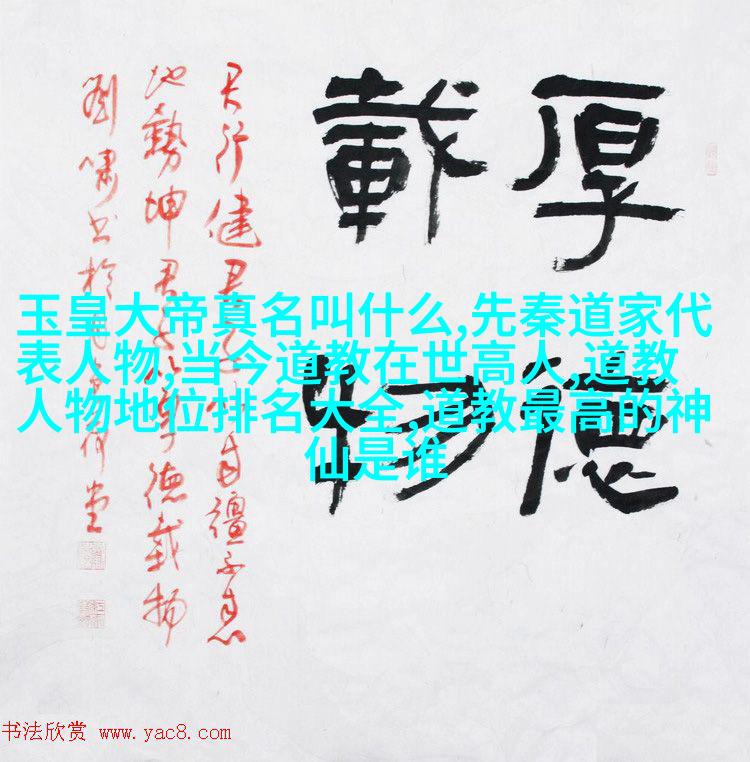 厚德
載物
天行健君子以自彊不息
地勢坤君子以厚德載物
劉嘯书於
玉皇大帝真名叫什么,先秦道家代
表人物,当今道教在世高人,道教
人物地位排名大全,道教最高的神
仙是谁
书法欣赏 www.yac8.com